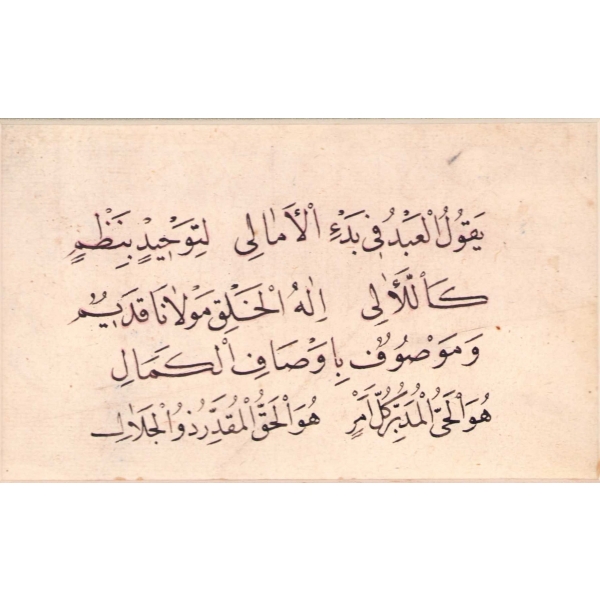 يَقُولُ الْعَبْدُ فِي بَدْءِ الْأَمَالِي لِتَوْحِيدٍ بِنَظْمٍ
كَاللَّآلِي اِلٰهُ الْخَلْقِ مَوْلَانَا قَدِيمٌ
وَمَوْصُوفٌ بِاَوْصَافِ الْكَمَالِ
هُوَ الْحَيُّ الْمُدَبِّرُ كُلَّ اَمْرٍ هُوَ الْحَقُّ الْمُقَدِّرُ ذُو الْجَلَالِ